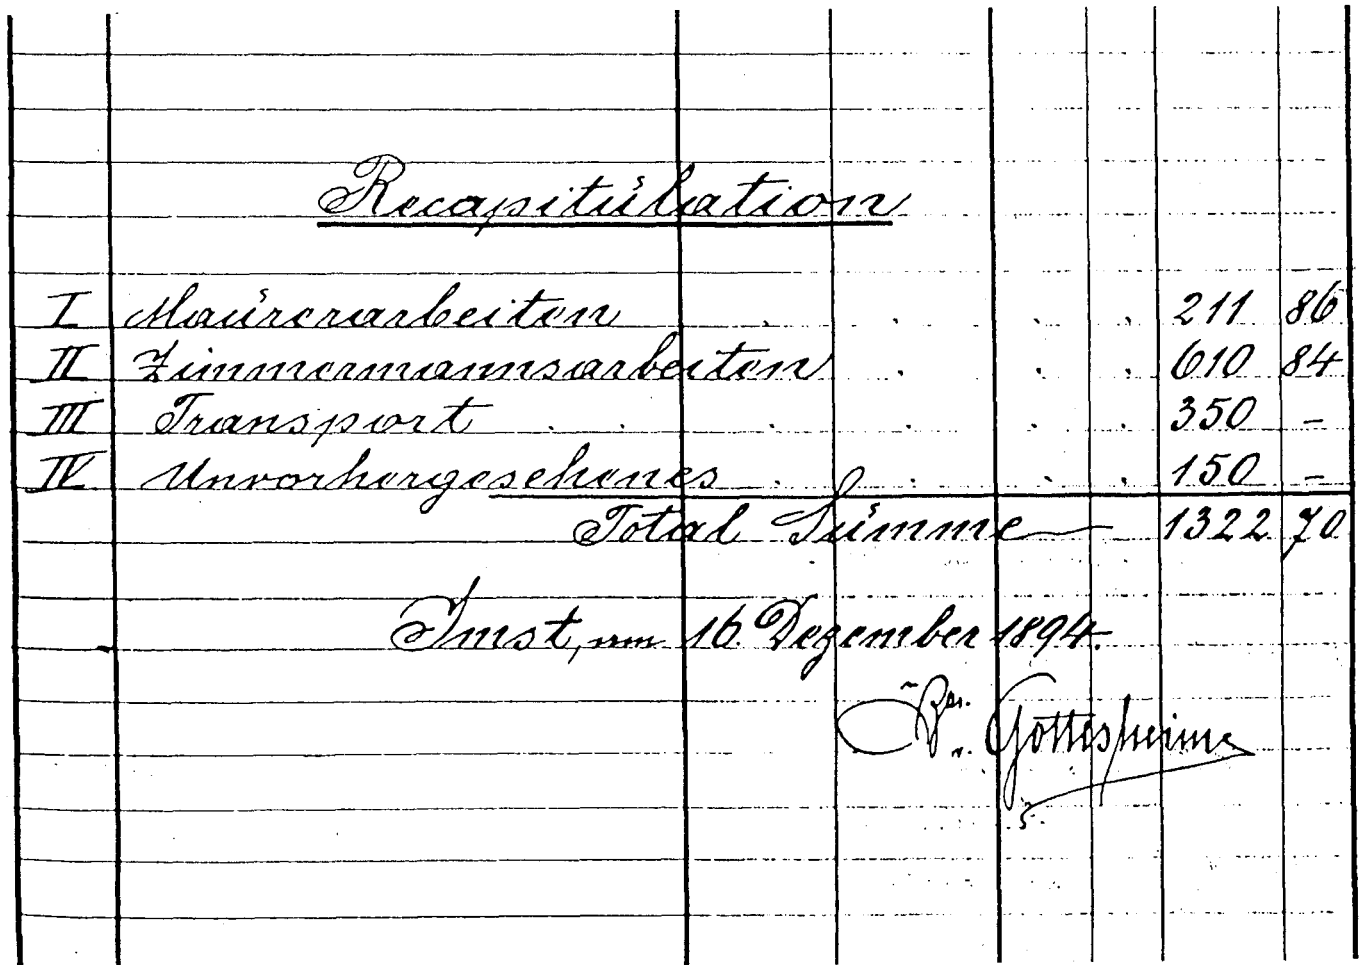 Recapitulation
I Maurerarbeiten . . . . . 211 86
II Zimmermannsarbeiten . . . 610 84
III Transport . . . . . . 350 -
IV Unvorhergesehenes . . . . 150 -
Total Summe 1322 70
Imst, am 16. Dezember 1894.